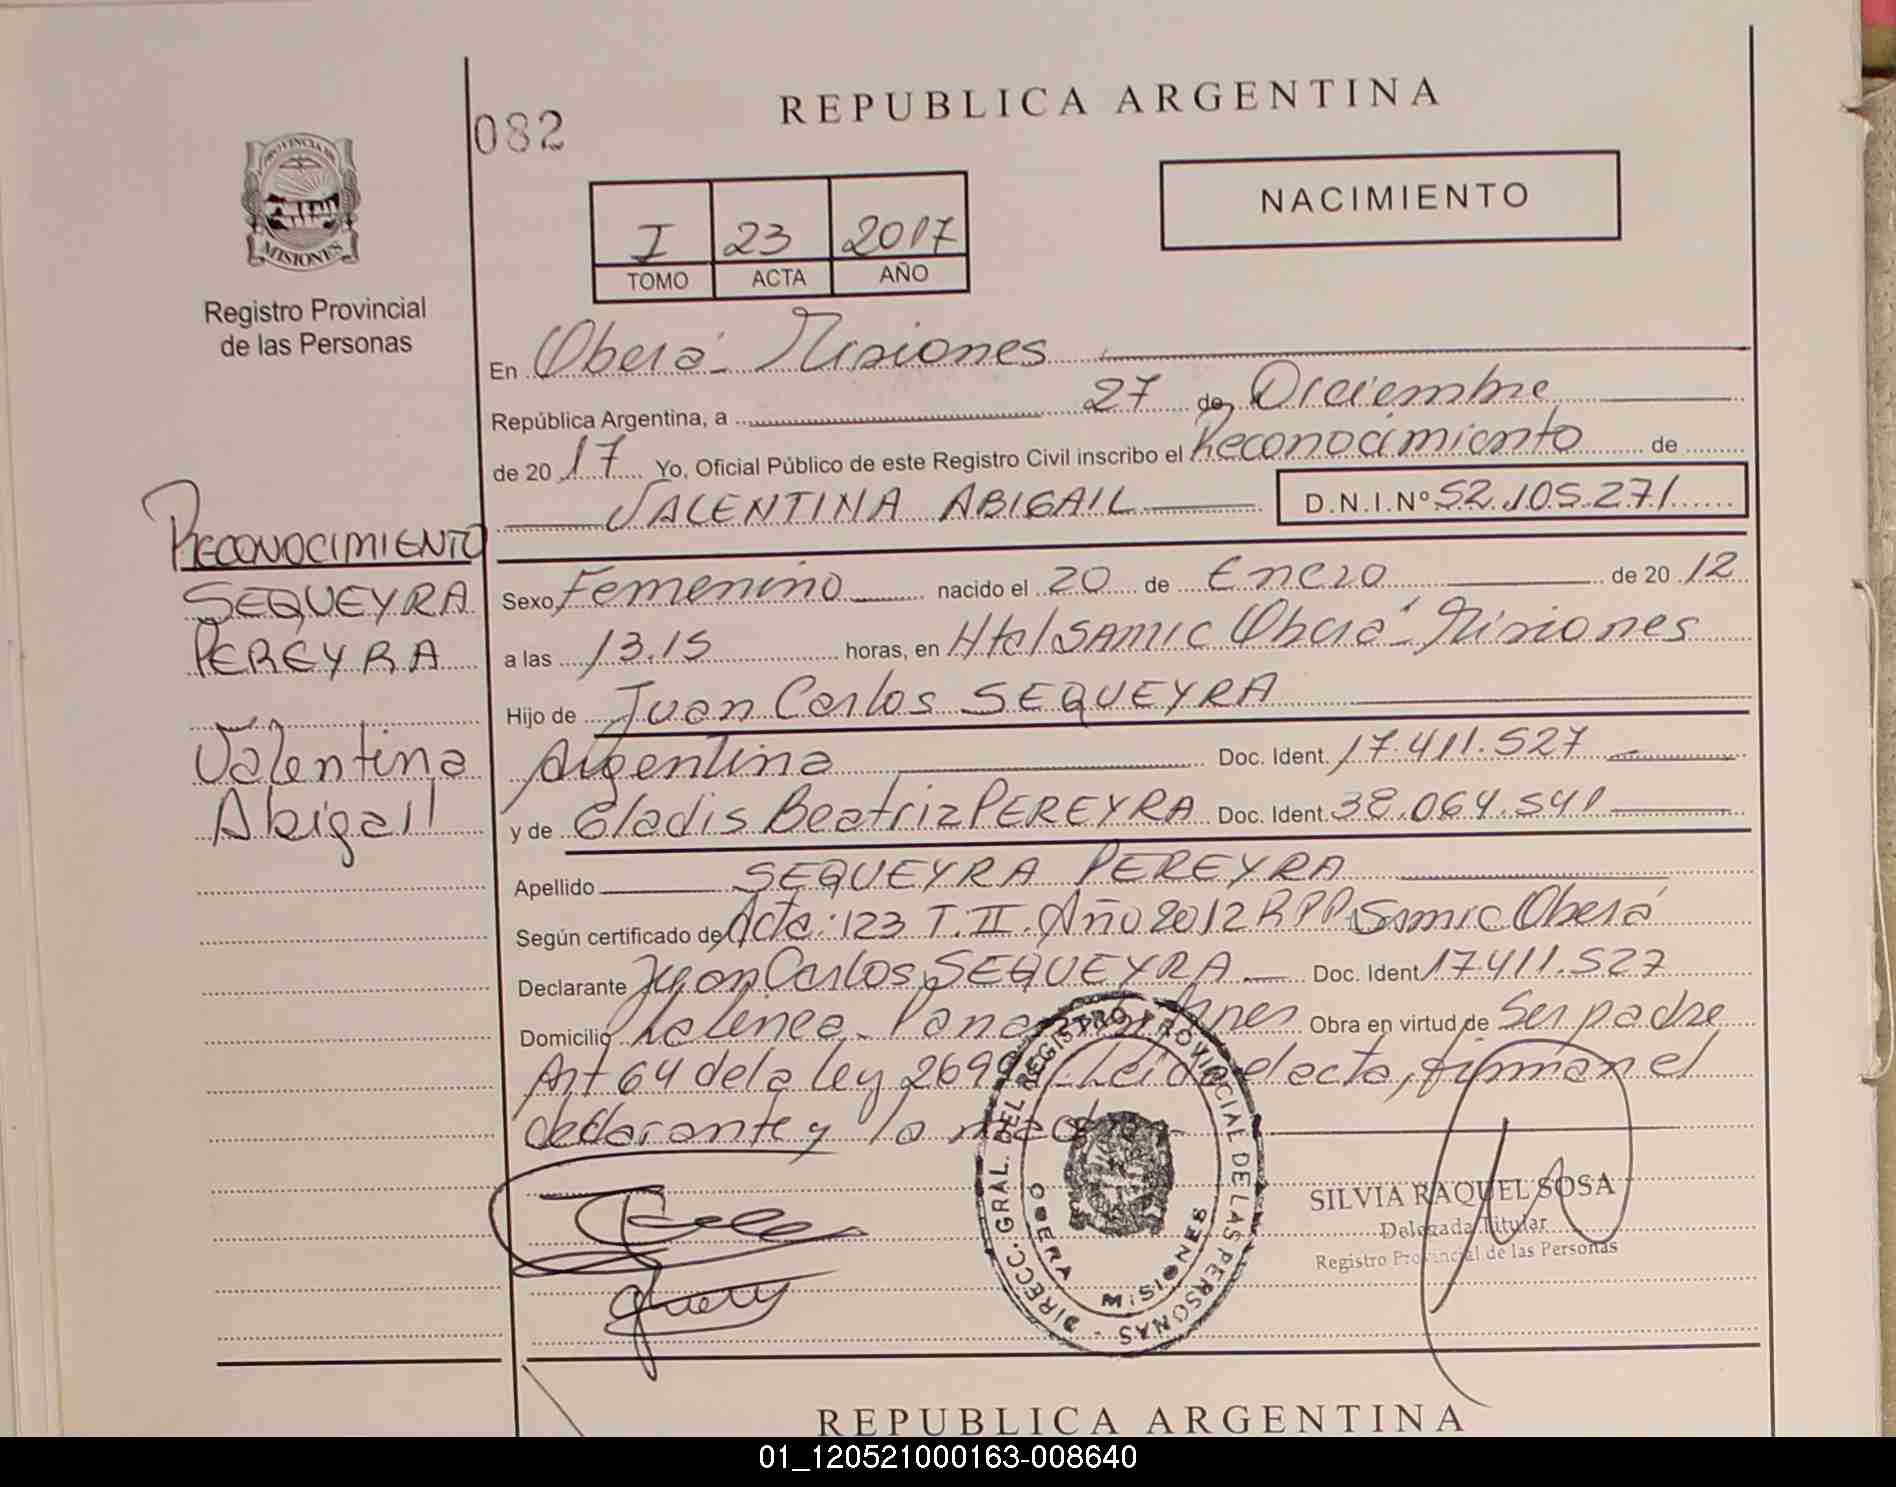 REPUBLICA ARGENTINA
082
PROVINCIA DE
MISIONES
Registro Provincial
de las Personas
NACIMIENTO
I 23 2017
TOMO ACTA AÑO
En Oberá - Misiones
República Argentina, a 27 de Diciembre
de 2017 Yo, Oficial Público de este Registro Civil inscribo el Reconocimiento de
VALENTINA ABIGAIL D.N.I.Nº 52.105.271
RECONOCIMIENTO
SEQUEYRA
PEREYRA
Valentina
Abigail
Sexo Femenino nacido el 20 de Enero de 2012
a las 13.15 horas, en Htal SAMIC Oberá - Misiones
Hijo de Juan Carlos SEQUEYRA
Argentina Doc. Ident. 17.411.527
y de Gladis Beatriz PEREYRA Doc. Ident. 38.064.541
Apellido SEQUEYRA PEREYRA
Según certificado de Acta: 123 T. II. Año 2012 RPP Samic Oberá
Declarante Juan Carlos SEQUEYRA Doc. Ident 17411.527
Domicilio Obra en virtud de Ser padre
Art 64 de la ley Leida el acta, firman el
declarante y la madre
DIRECC. GRAL. DEL REGISTRO PROVINCIAL DE LAS PERSONAS -
OBERA MISIONES
SILVIA RAQUEL SOSA
Delegada Titular
Registro Provincial de las Personas
REPUBLICA ARGENTINA
01_120521000163-008640